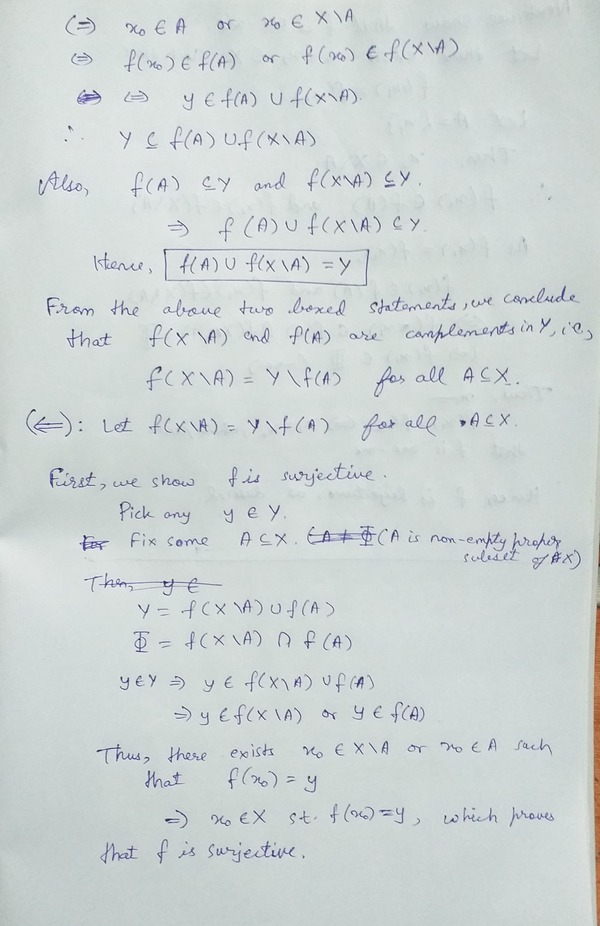 (⇒) x₀ ∈ A or x₀ ∈ X\A
⇔ f(x₀) ∈ f(A) or f(x₀) ∈ f(X\A)
⇔ y ∈ f(A) ∪ f(X\A).
∴ Y ⊆ f(A) ∪ f(X\A)
Also, f(A) ⊆ Y and f(X\A) ⊆ Y.
⇒ f(A) ∪ f(X\A) ⊆ Y.
Hence, f(A) ∪ f(X\A) = Y
From the above two boxed statements, we conclude
that f(X\A) and f(A) are complements in Y, i.e,
f(X\A) = Y\f(A) for all A⊆X.
(⇐): Let f(X\A) = Y\f(A) for all A⊆X.
First, we show f is surjective.
Pick any y ∈ Y.
Fix some A⊆X. (A ≠ Φ (A is non-empty proper
subset of X)
Then, y ∈
Y = f(X\A) ∪ f(A)
Φ = f(X\A) ∩ f(A)
y∈Y ⇒ y ∈ f(X\A) ∪ f(A)
⇒ y ∈ f(X\A) or y ∈ f(A)
Thus, there exists x₀ ∈ X\A or x₀ ∈ A such
that f(x₀) = y
⇒ x₀ ∈ X s.t. f(x₀) = y, which proves
that f is surjective.